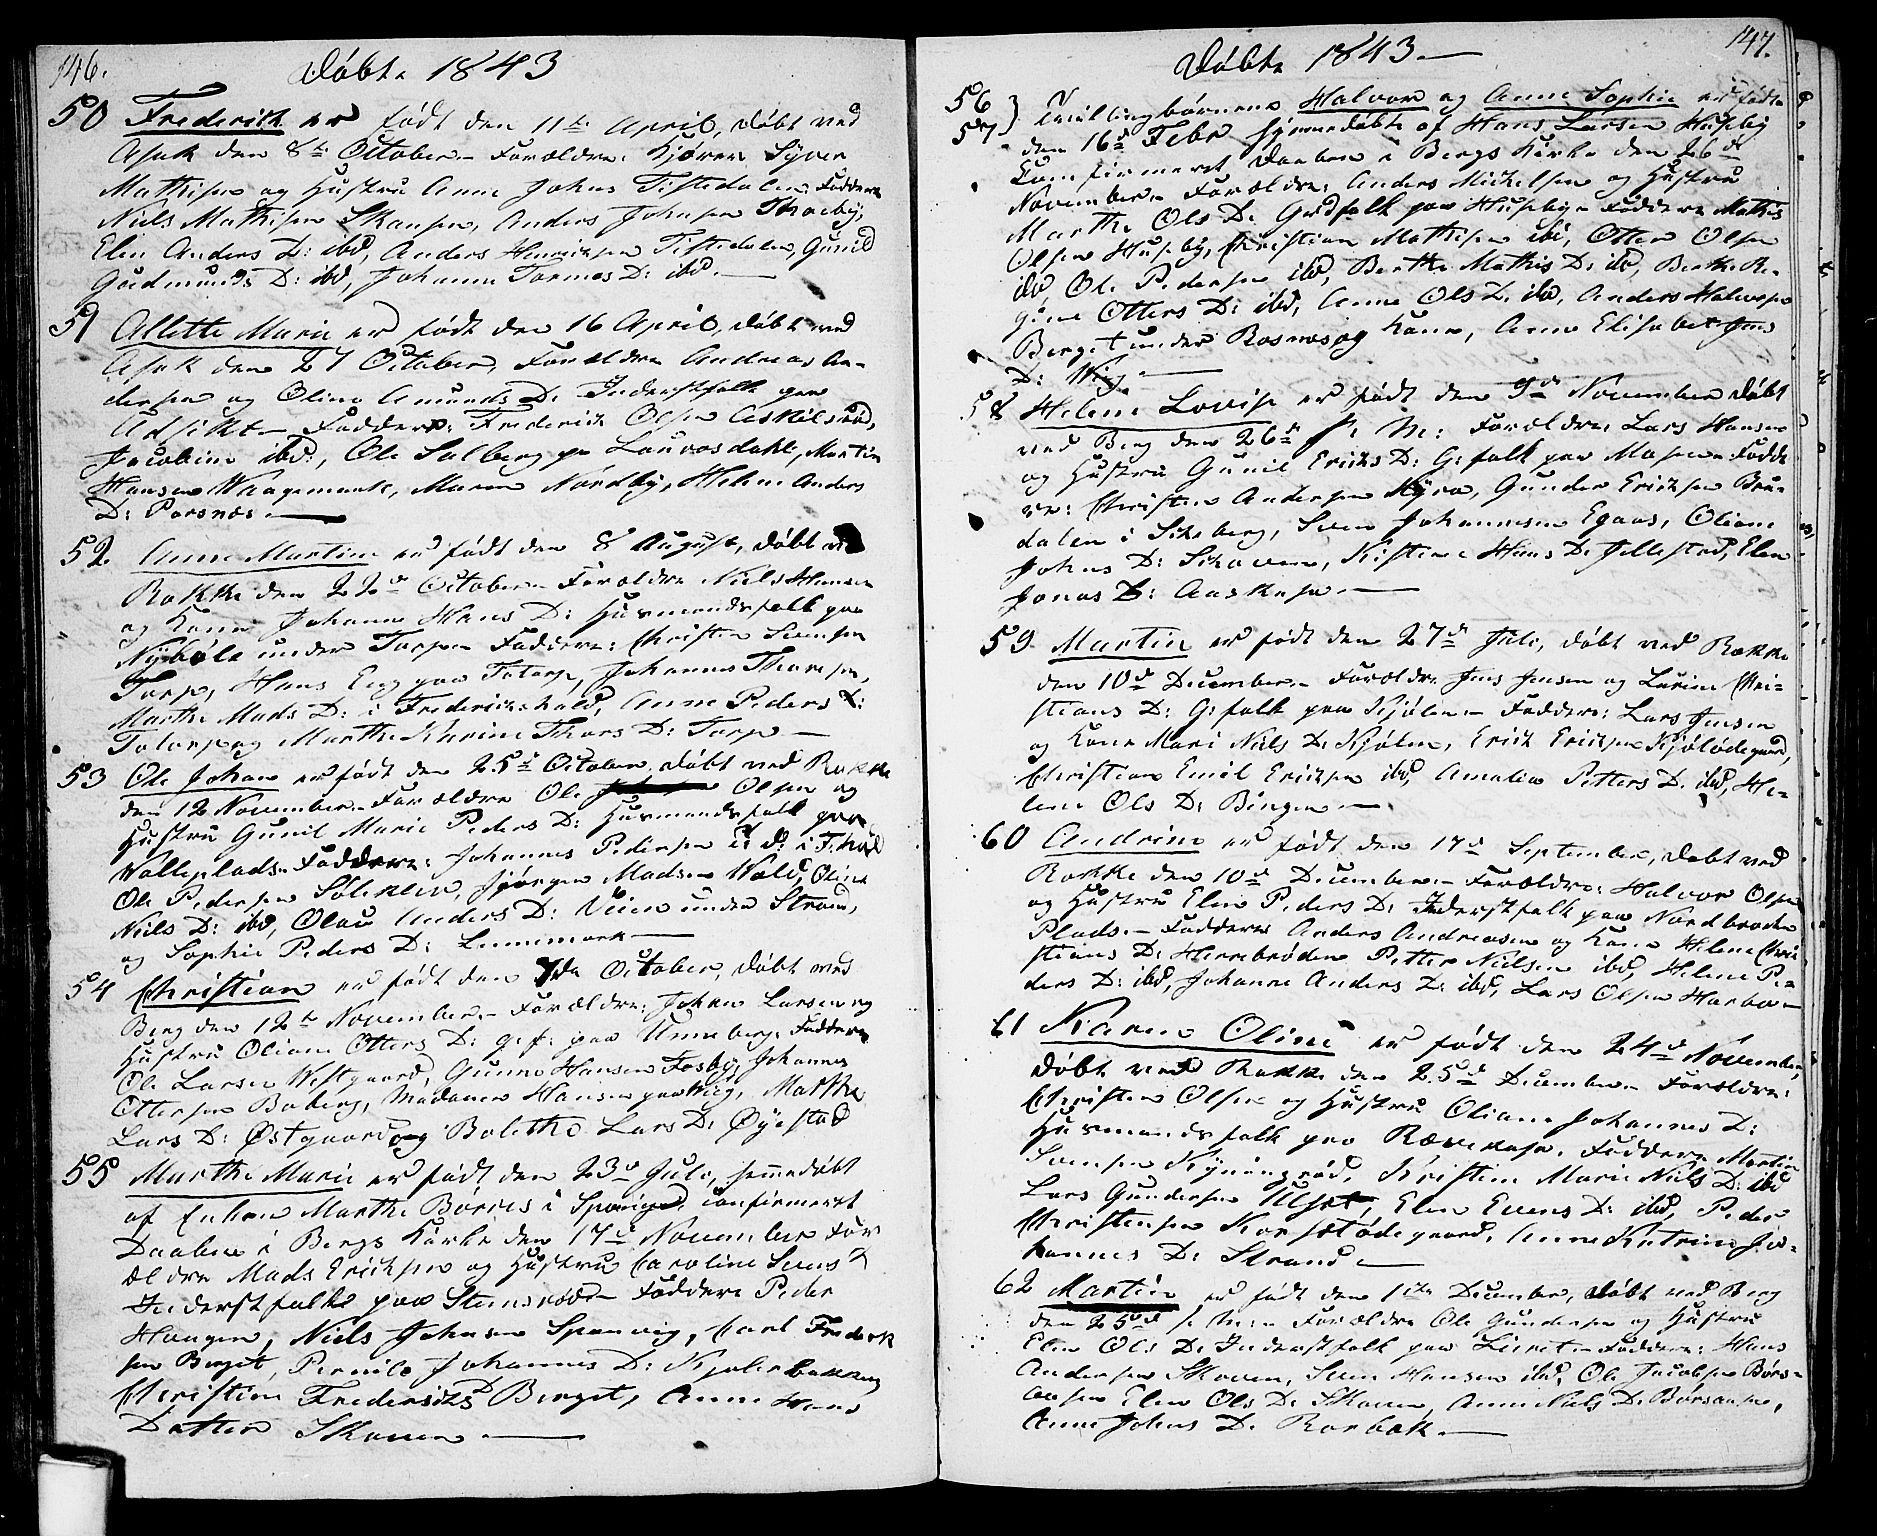 146.
Döbte 1843
50 Frederick er födt den 11te April, döbt ved
Asak den 8te October. Forældre: Kjörer Syver
Mathisen og Hustru Anne Johns Tistedalen Faddere
Niels Mathisen Skansen, Anders Johnsen Thoeby,
Elen Anders D: ibd, Anders Henriksen Tistedalen, Gunild
Gudmunds D: ibd, Johanne Tormos D: ibd.
51 Allette Marie er födt den 16 April, döbt ved
Asak den 27 October, Forældre Andreas An-
dersen og Oline Amunds D. Inderstfolk paa
Udsikt. Faddere: Frederick Olsen Askilsröd,
Jacobine ibd:, Ole Solberg paa Lauvosdahl, Martin
Hansen Waagemark, Maren Nordby, Helene Anders
D: Porsnæs.
52. Anne Martine er födt den 8 August, döbt ved
Rokke den 22de October. Forældre Niels Hansen
og Kone Johanne Hans D: Husmandsfolk paa
Nyböle under Torp. Faddere: Christen Svensen
Torp, Hans Eng paa Totorp, Johannes Thoresen,
Marthe Mads D: i Frederickshald, Anne Peders D:
Totorp og Marthe Kthrine Thors D: Torp
53 Ole Johan er födt den 25de October döbt ved Rokke
den 12 November. Forældre Ole Olsen og
Hustru Gunil Marie Peders D: Husmandsfolk paa
Wolleplads. Faddere: Johannes Pedersen i F.hald
Ole Pedersen Sölieren, Jörgen Madsen Wold, Oline
Niels D: ibd, Olau Anders D: Veien under Strand,
og Sophie Peders D: Lunnemork
54 Christian er födt den 7de October, döbt ved
Berg den 12te November. Forældre: Johan Larsen og
Hustru Oliane Otters D: g: f: paa Unneberg. Faddere
Ole Larsen Westgaard, Gunne Hansen Fosby, Johannes
Ottersen Boberg, Madamen Hansen paa Wiig, Marthe
Lars D: Östgaard og Bolethe Lars D: Öyestad
55 Marthe Marie er födt den 23de Juli, hjemmedöbt
af Enken Marthe Börres i Sponvigen, confirmeret
Daaben i Bergs Kirke den 17de November For
ældre Mads Ericksen og Hustru Caroline Svens D
Inderstfolk paa Stensröd. Faddere Peder
Haagen, Niels Johnsen Sponvig, Carl Frederik
sen Berget, Pernile Johannes D: Kjölerbakken
Christine Fredericks D Berget, Anne Hans
Datter Skoven
147.
Döbte 1843
56
57 } Tvillingbörnene Halvor og Anne Sophie er födte
den 16de Febr hjemmedöbte af Hans Larsen Huseby
Comfirmeret Daaben i Bergs Kirke den 26de
November. Forældre: Anders Mickelsen og Hustru
Marthe Ols D. Grdfolk paa Huseby. Faddere Mathis
Olsen Huseby, Christian Mathisen ibd, Otter Olsen
ibd, Ole Pedersen ibd, Berthe Mathis D: ibd, Berthe Re-
gine Otters D: ibd, Anne Ols D. ibd, Anders Halvorsen
Berget under Rosnes og Kone, Anne Elisabet Jens
D: Wiig.
58 Helene Lovise er födt den 9de November döbt
ved Berg den 26de s. M: Forældre Lars Hansen
og Hustru Gunil Ericks D: G: folk paa Mosen. Fadde
re: Christen Andersen Myra, Gunder Ericksen Bru-
dalen i Sikeberg, Sven Johannesen Egaas, Oliane
Johns D: Skoven, Kistine Hans D. Jellestad, Elen
Jonas D: Aaskasa
59 Martin er födt den 27de Juli, döbt ved Rokke
den 10de December. Forældre Jens Jensen og Larine Chri-
stians D: G: folk paa Kjölen. Faddere: Lars Jensen
og Kone Mari Niels D: Kjölen, Erick Ericksen Kjölödegaard,
Christian Emil Ericksen ibd, Amalia Petters D. ibd, He-
lene Ols D: Bingen
60 Andrine er födt den 17de September, döbt ved
Rokke den 10de December. Forældre: Halvor Olsen
og Hustru Elen Peders D: Inderstfolk paa Nordbroden
Plads. Faddere Anders Andreasen og Kone Helene Chri
stians D: Herrebröden Petter Nielsen ibd, Helene Pe-
ders D: ibd, Johanne Anders D: ibd, Lars Olsen Harbo
61 Karen Oline er födt den 24de November,
döbt ved Rokke den 25de December. Forældre:
Christen Olsen og Hustru Oliane Johannes D:
Husmandsfolk paa Rævekasa. Faddere Martin
Svensen Kynningröd, Kristine Marie Niels D: ibd
Lars Gundersen Ulset, Elen Evens D: ibd, Peder
Christensen Korsetödegaard, Anne Katrine Jo-
hannes D: Strand
62 Martin er födt den 1ste December, döbt ved Berg
den 25de s. M: Forældre Ole Gundersen og Hustru
Elen Ols D. Inderstfolk paa Liaret. Faddere: Hans
Andersen Skoven, Sven Hansen ibd, Ole Jacobsen Börs-
aasen Elen Ols D: Skoven, Anne Niels D. Börsaasen,
Anne Johns D. Rorbæk.